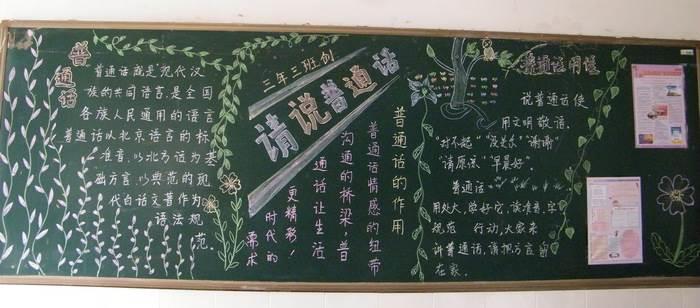 普通话
普通话就是"现代汉
族的共同语言,是全国
各族人民通用的语言
普通话以北京语言的标
准音,以北方话为基
础方言,以典范的现
代白话文普作为
语法规
范
三年三班创
请说普通话
普通话的作用
普通话情感的纽带
沟通的桥梁,普
通话让生活
更精彩!
时代的
需求
说普通话使
用文明敬语。
"对不起""没关系""谢谢"
"请原谅""早晨好"。
普通话
用处大,学好它,读准音,字
规范 行动,大家来
讲普通话,请把方言留
在家。